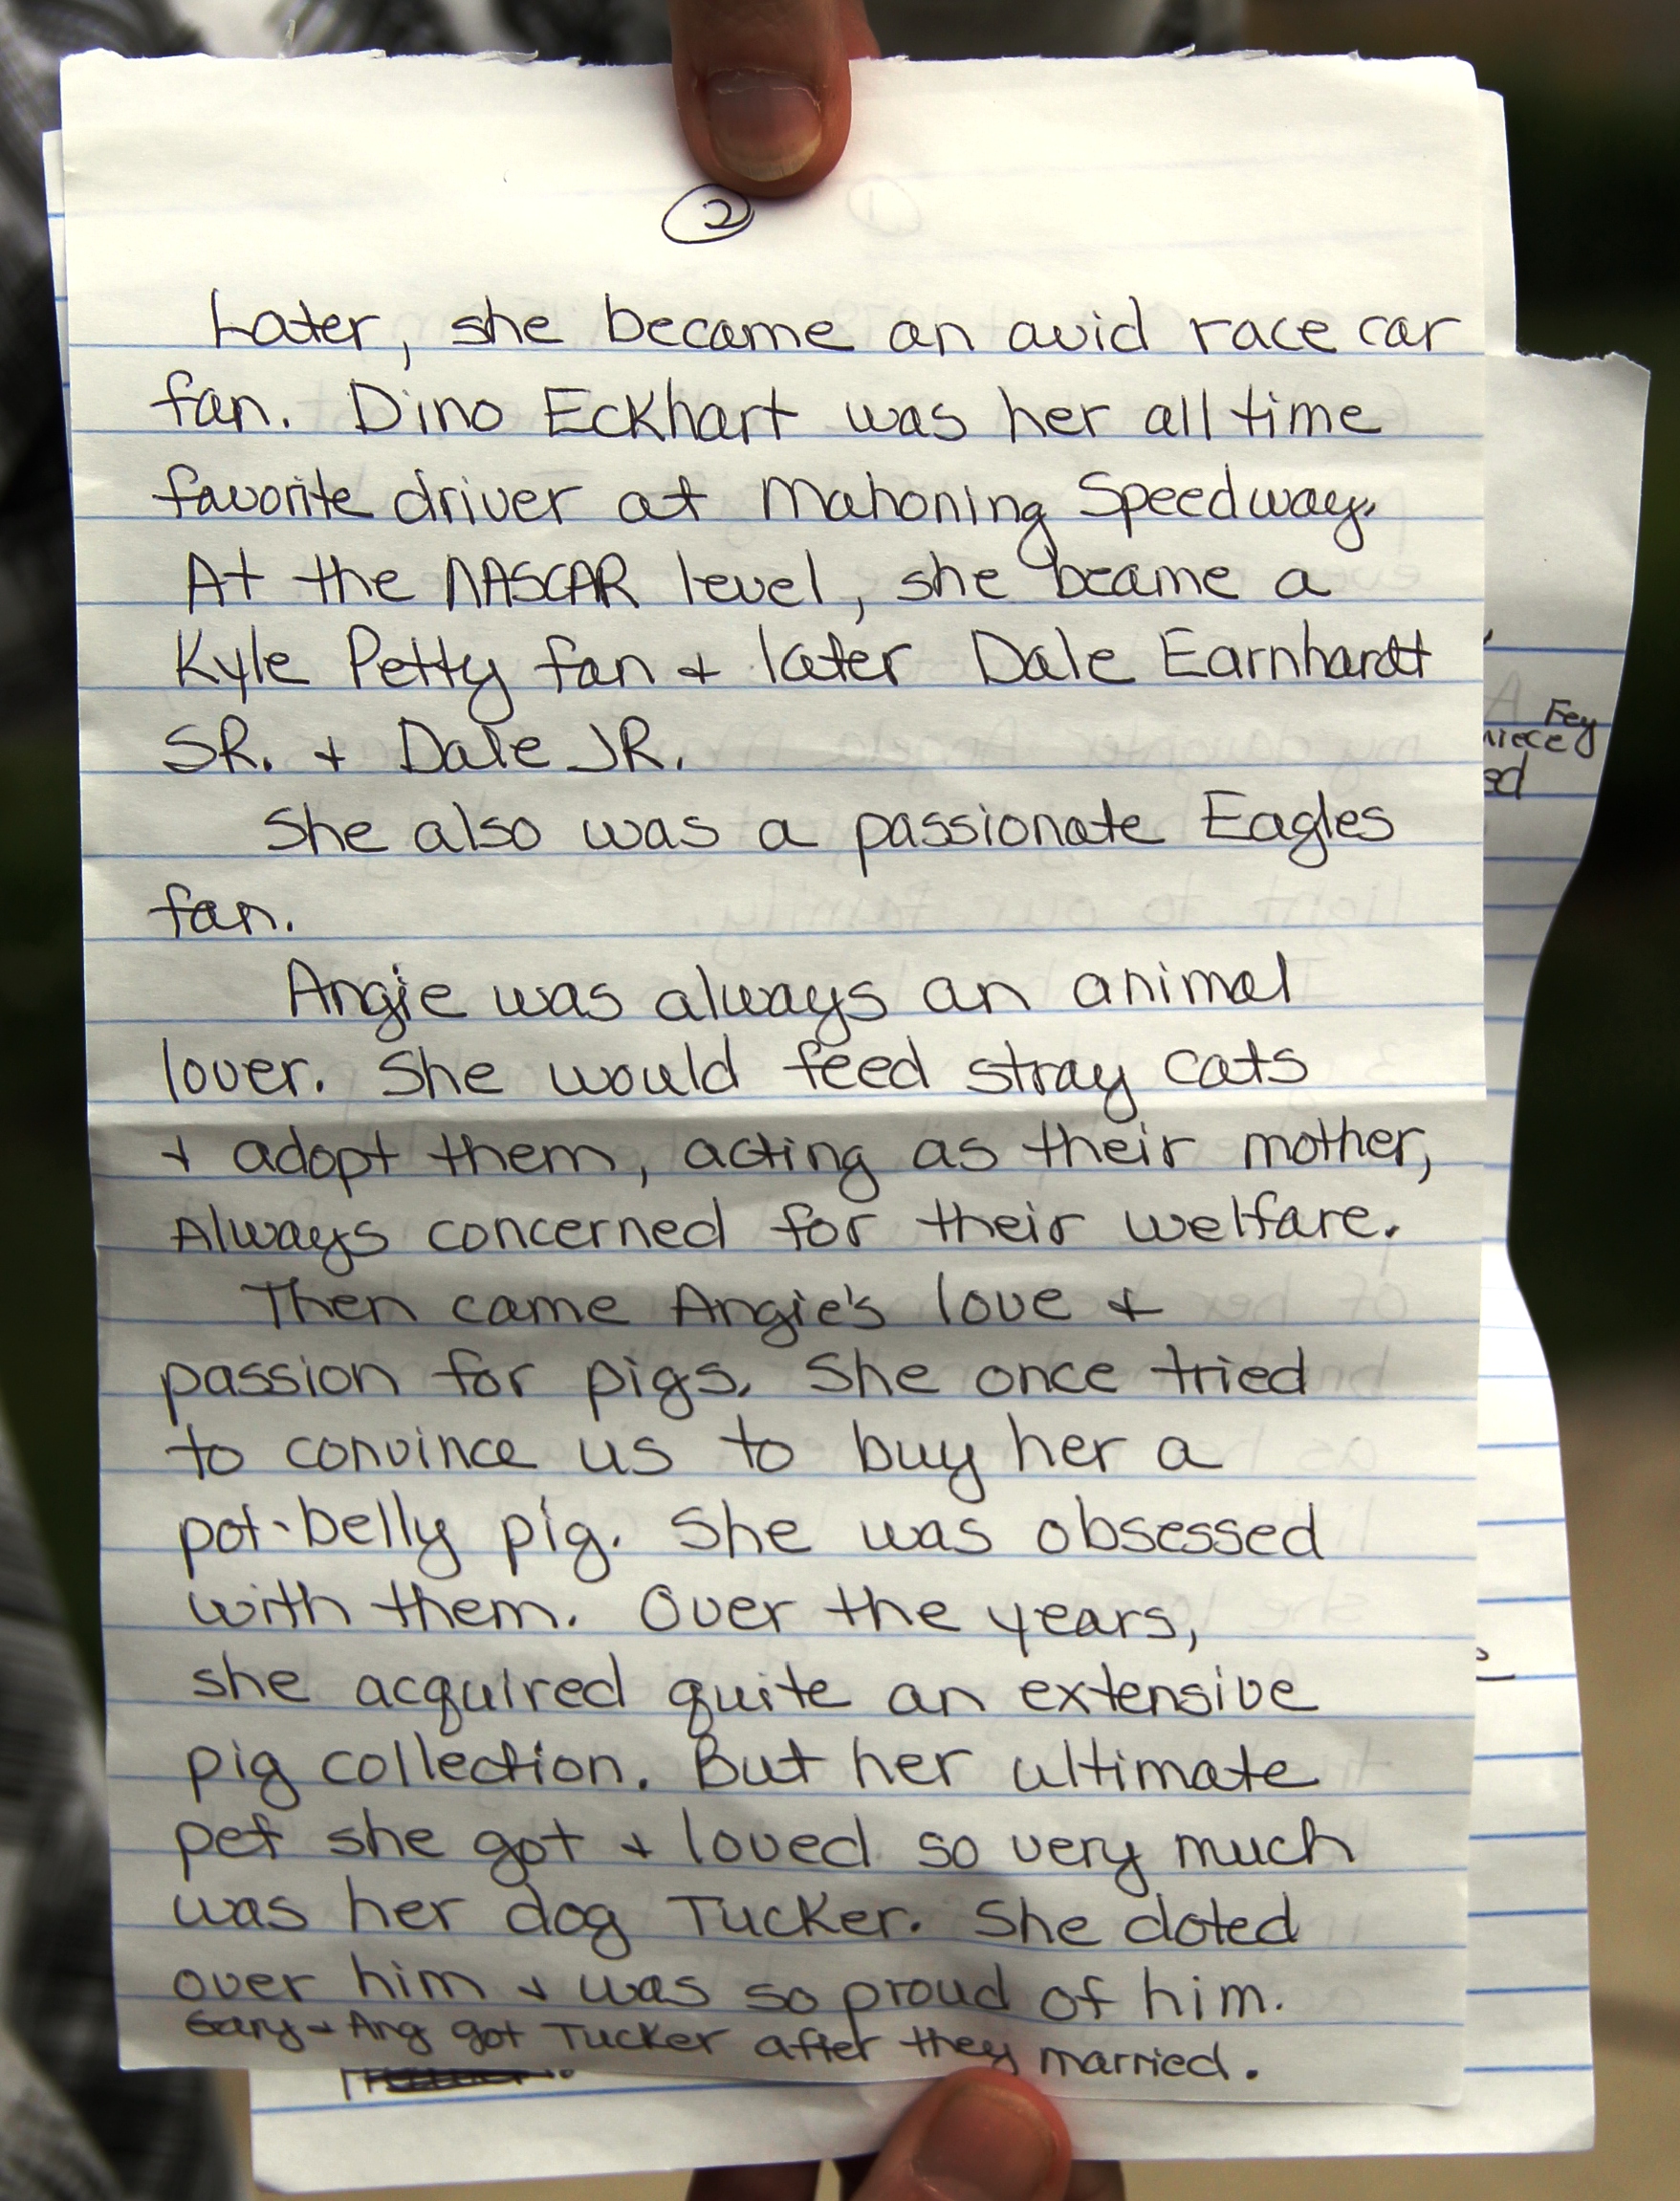 2
Later, she became an avid race car
fan. Dino Eckhart was her all time
favorite driver at Mahoning Speedway.
At the NASCAR level, she became a
Kyle Petty fan + later Dale Earnhardt
SR. + Dale JR.
She also was a passionate Eagles
fan.
Angie was always an animal
lover. She would feed stray cats
+ adopt them, acting as their mother,
Always concerned for their welfare.
Then came Angie's love +
passion for pigs. She once tried
to convince us to buy her a
pot-belly pig. She was obsessed
with them. Over the years,
she acquired quite an extensive
pig collection. But her ultimate
pet she got + loved so very much
was her dog Tucker. She doted
over him + was so proud of him.
Gary + Ang got Tucker after they married.
Fey
niece
ed